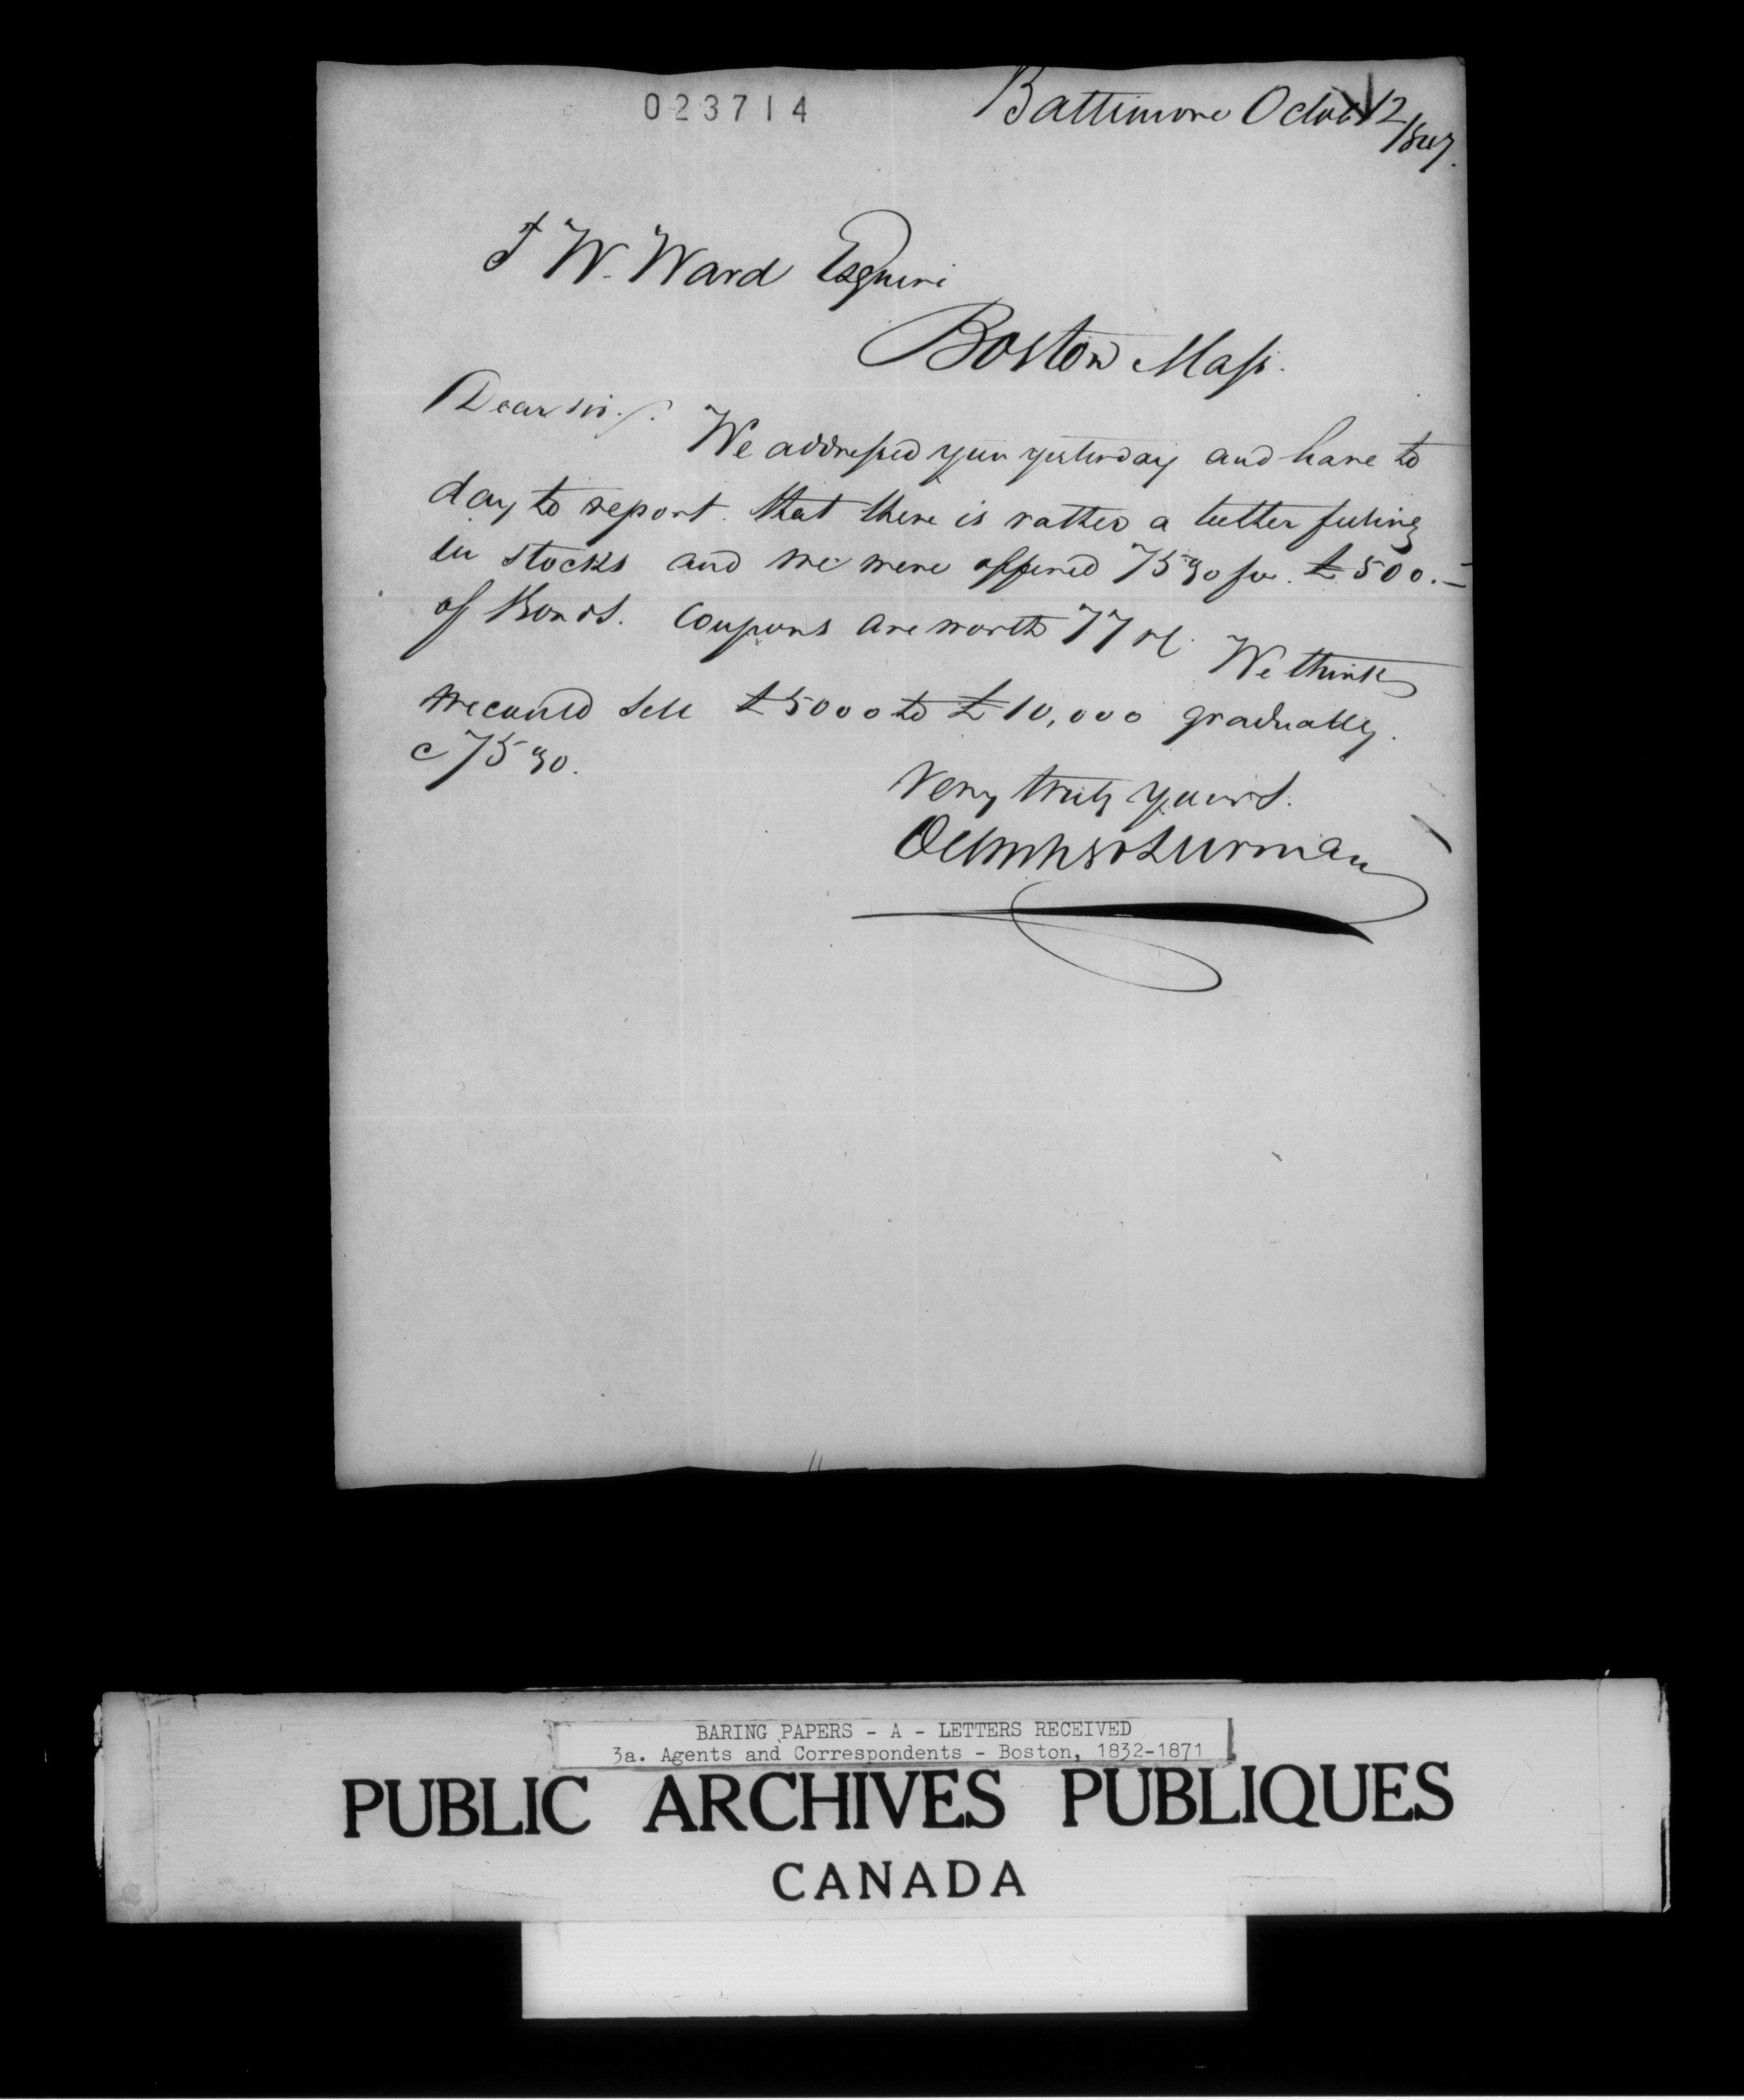 023714
Baltimore Octob 12/1847.
T W. Ward Esquire
Boston Mass.
Dear Sir.
We addressed you yesterday and have to
day to report. that there is rather a better feeling
in stocks and we were offered 75 90 for. £500.–
of Bonds. Coupons are worth 77
We think
we could sell £5000 to £10,000 gradually.
c 75 90.
Very truly yours.
Oelrichs & Lurman
BARING PAPERS - A - LETTERS RECEIVED
3a. Agents and Correspondents - Boston, 1832-1871
PUBLIC ARCHIVES PUBLIQUES
CANADA